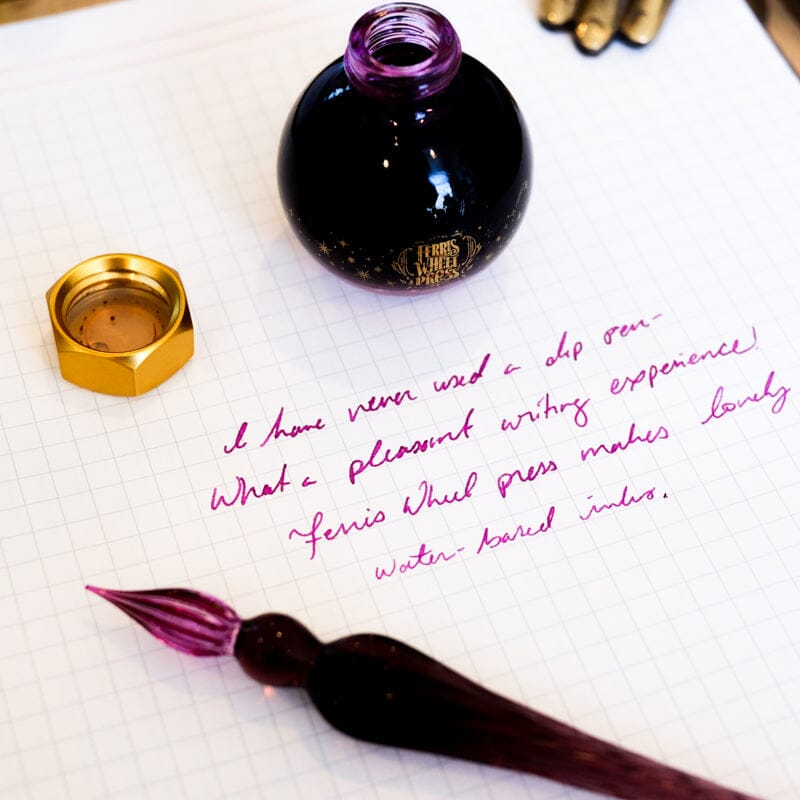 FERRIS
WHEEL
PRESS
I have never used a dip pen-
What a pleasant writing experience!
Ferris Wheel press makes lovely
water-based inks.